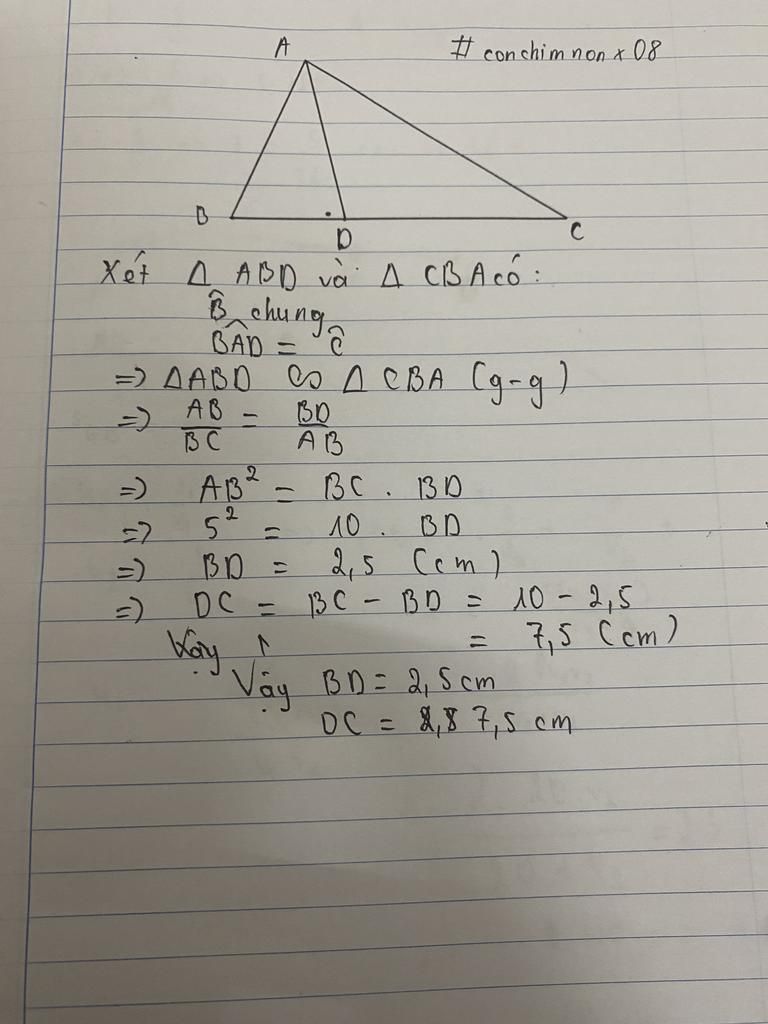 A
# conchimnonx08
B
D
C
Xét Δ ABD và Δ CBA có:
B̂ chung
BÂD = Ĉ
=> ΔABD ∽ Δ CBA (g-g)
=> AB/BC = BD/AB
=> AB² = BC . BD
=> 5² = 10 . BD
=> BD = 2,5 (cm)
=> DC = BC - BD = 10 - 2,5
Vậy = 7,5 (cm)
Vậy BD = 2,5 cm
DC = 7,5 cm